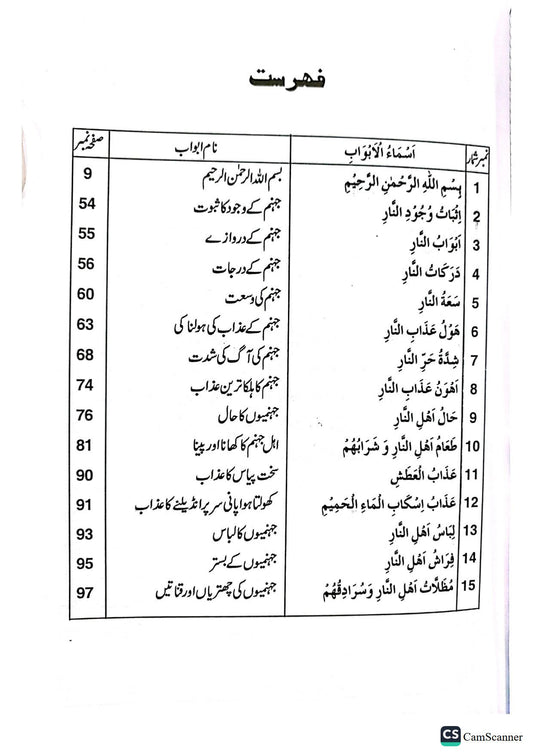 فهرست
نمبر شمار اَسْمَاءُ الْاَبْوَابِ نام ابواب صفحہ نمبر
1 بِسْمِ اللّٰهِ الرَّحْمٰنِ الرَّحِيْمِ بسم اللہ الرحمٰن الرحیم 9
2 اِثْبَاتُ وُجُوْدِ النَّارِ جہنم کے وجود کا ثبوت 54
3 اَبْوَابُ النَّارِ جہنم کے دروازے 55
4 دَرَكَاتُ النَّارِ جہنم کے درجات 56
5 سَعَةُ النَّارِ جہنم کی وسعت 60
6 هَوْلُ عَذَابِ النَّارِ جہنم کے عذاب کی ہولناکی 63
7 شِدَّةُ حَرِّ النَّارِ جہنم کی آگ کی شدت 68
8 اَهْوَنُ عَذَابِ النَّارِ جہنم کا ہلکا ترین عذاب 74
9 حَالُ اَهْلِ النَّارِ جہنمیوں کا حال 76
10 طَعَامُ اَهْلِ النَّارِ وَ شَرَابُهُمْ اہل جہنم کا کھانا اور پینا 81
11 عَذَابُ الْعَطَشِ سخت پیاس کا عذاب 90
12 عَذَابُ اِسْكَابِ الْمَاءِ الْحَمِيْمِ کھولتا ہوا پانی سر پر انڈیلنے کا عذاب 91
13 لِبَاسُ اَهْلِ النَّارِ جہنمیوں کا لباس 93
14 فِرَاشُ اَهْلِ النَّارِ جہنمیوں کے بستر 95
15 مُظَلَّاتُ اَهْلِ النَّارِ وَسُرَادِقُهُمْ جہنمیوں کی چھتریاں اور قناتیں 97
CS CamScanner